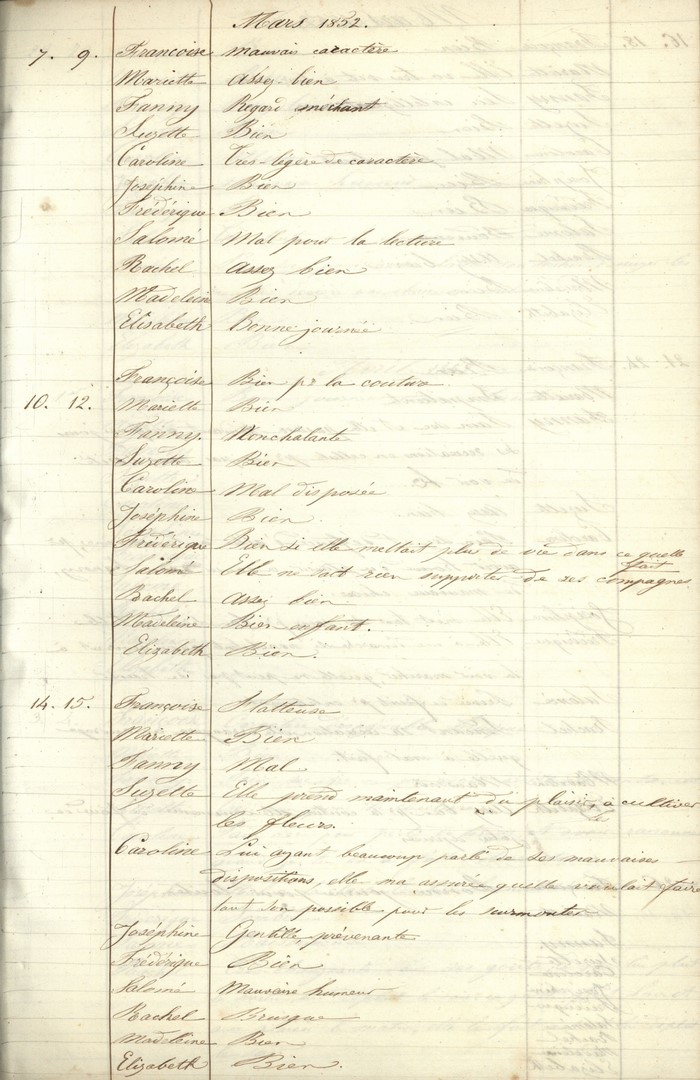 Mars 1832.
7. 9. Françoise mauvais caractère
Mariette assez bien
Fanny Regard méchant
Suzette Bien
Caroline Très-légère de caractère
Joséphine Bien
Frédérique Bien
Salomé Mal pour la lecture
Rachel assez bien
Madeleine Bien
Elisabeth Bonne journée
Françoise Bien pr la couture
10. 12. Mariette Bien
Fanny. Nonchalante
Suzette Bien
Caroline Mal disposée
Joséphine Bien.
Frédérique Bien si elle mettait plus de vie dans ce quelle
fait
Salomé Elle ne sait rien supporter de ses compagnes
Rachel assez bien
Madeleine Bien enfant.
Elizabeth Bien.
14. 15. Françoise Flatteuse
Mariette Bien
Fanny Mal
Suzette Elle prend maintenant du plaisir à cultiver
les fleurs.
Caroline Lui ayant beaucoup parlé de ses mauvaises
dispositions, elle ma assurée quelle voulait faire
tout son possible pour les surmonter
Joséphine Gentille, prévenante
Frédérique Bien
Salomé Mauvaise humeur
Rachel Brusque
Madeleine Bien
Elizabeth Bien.